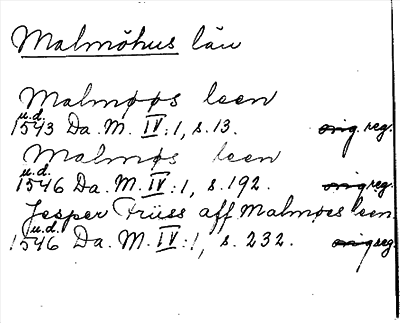 Malmöhus län
Malmøøs leen
u.d.
1543 Da. M. IV:1, s. 13. orig. reg.
Malmøs leen
u.d.
1546 Da. M. IV:1, s. 192. orig. reg.
Jesper Früss aff Malmøes leen
u.d.
1546 Da. M. IV:1, s. 232. orig. reg.